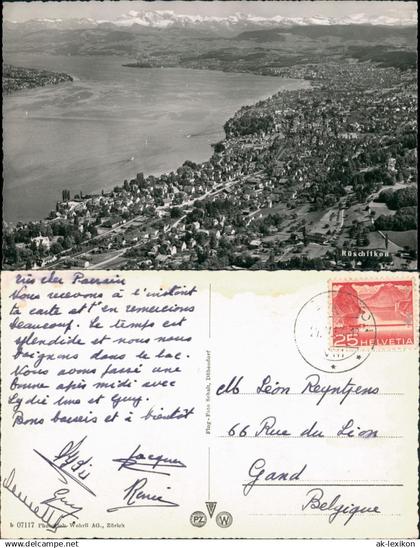 Rüschlikon
Très cher Parrain
Nous recevons à l'instant
ta carte et t'en remercions
beaucoup. Le temps est
splendide et nous nous
baignons dans le lac.
Nous avons passé une
bonne après midi avec
Lydie une et Guy.
Bons baisers et à bientôt
Lydi Jacques
Guy Renée
b 07117 Photoglob-Wehrli AG., Zürich
Flug-Foto Schalt, Dübendorf
25 HELVETIA
VIII
M Léon Reyntjens
66 Rue du Lion
Gand
Belgique
PZ W
© ak-lexikon.com